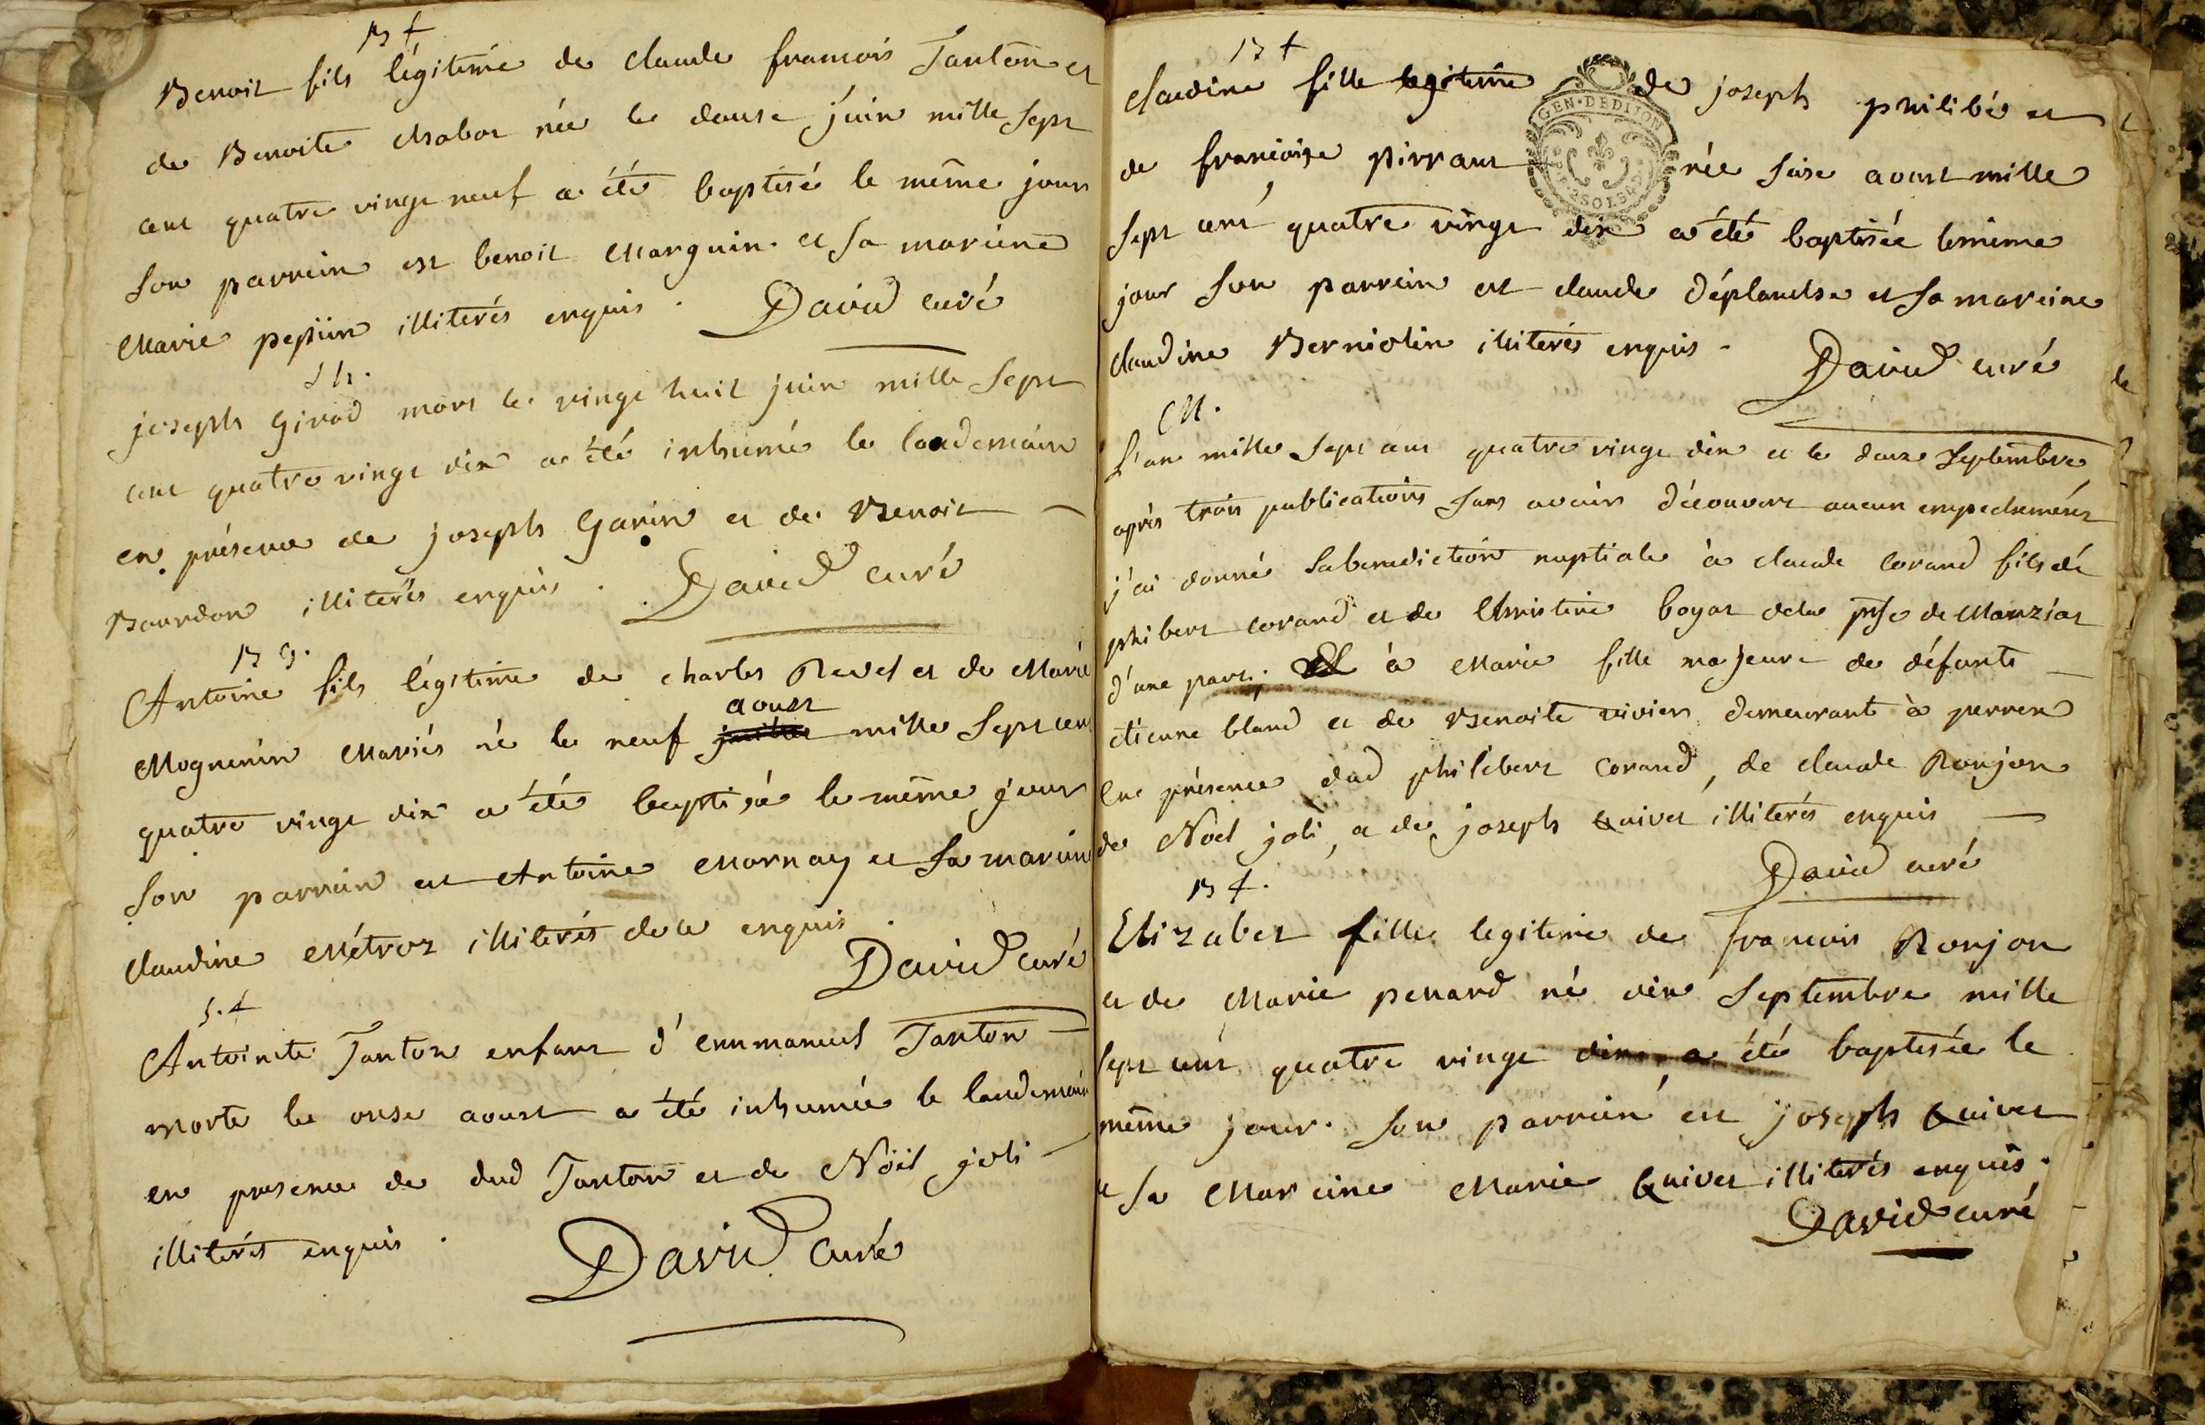 B f
Benoit fils légitime de claude francois Tanton et
de Benoite Chabot née le douse juin mille sept
cent quatre vingt neuf a été baptisé le même jour
son parrein est benoit Marguin et sa mareine
Marie pepiin illiterés enquis. David curé
S h.
joseph girod mort le vingt huit juin mille sept
cent quatre vingt dix a été inhumé le lendemain
en présence de joseph Garin et de Benoit
Bourdon illiterés enquis. David curé
B g.
Antoine fils légitime de charles Revel et de Marie
aoust
Mognenin Mariés né le neuf mille sept cent
quatre vingt dix a été baptisé le même jour
son parrein est Antoine Mornay et sa mareine
claudine Métroz illiterés de ce enquis.
David curé
S. f
Antoinete Tanton enfant d'emmanuel Tanton
morte le onse aoust a été inhumée le lendemain
en presence de dud Tanton et de Nöel joli
illiterés enquis.
David Curé
B f
claudine fille legitime de joseph philibé et
GEN·DEDIJON
de francoise pirraut née seise aoust mille
2SOLS
sept cent quatre vingt dix a été baptisée le même
jour son parrein est claude déplanche et sa mareine
claudine Berniolin illiterés enquis.
David curé
M.
L'an mille sept cent quatre vingt dix et le douze septembre
aprés trois publications sans avoir découvert aucun empechement
j'ai donné la benediction nuptiale à claude Corand fils de
phibert corand et de Christine boyat de la psse de Marziat
d'une part; Et à Marie fille majeure de défunte
etienne bland et de Benoite vivier demeurant à perrex
en présence dud philibert Corand, de claude Ronjon
de Nöel joli, et de joseph Quivet illiterés enquis
David curé
B f.
Elizabet fille legitime de francois Ronjon
et de Marie penard né dix septembre mille
sept cent quatre vingt dix, a été baptisée le
même jour. son parrein est joseph Quivet
et sa Mareine Marie Quivet illiterés enquis.
David curé